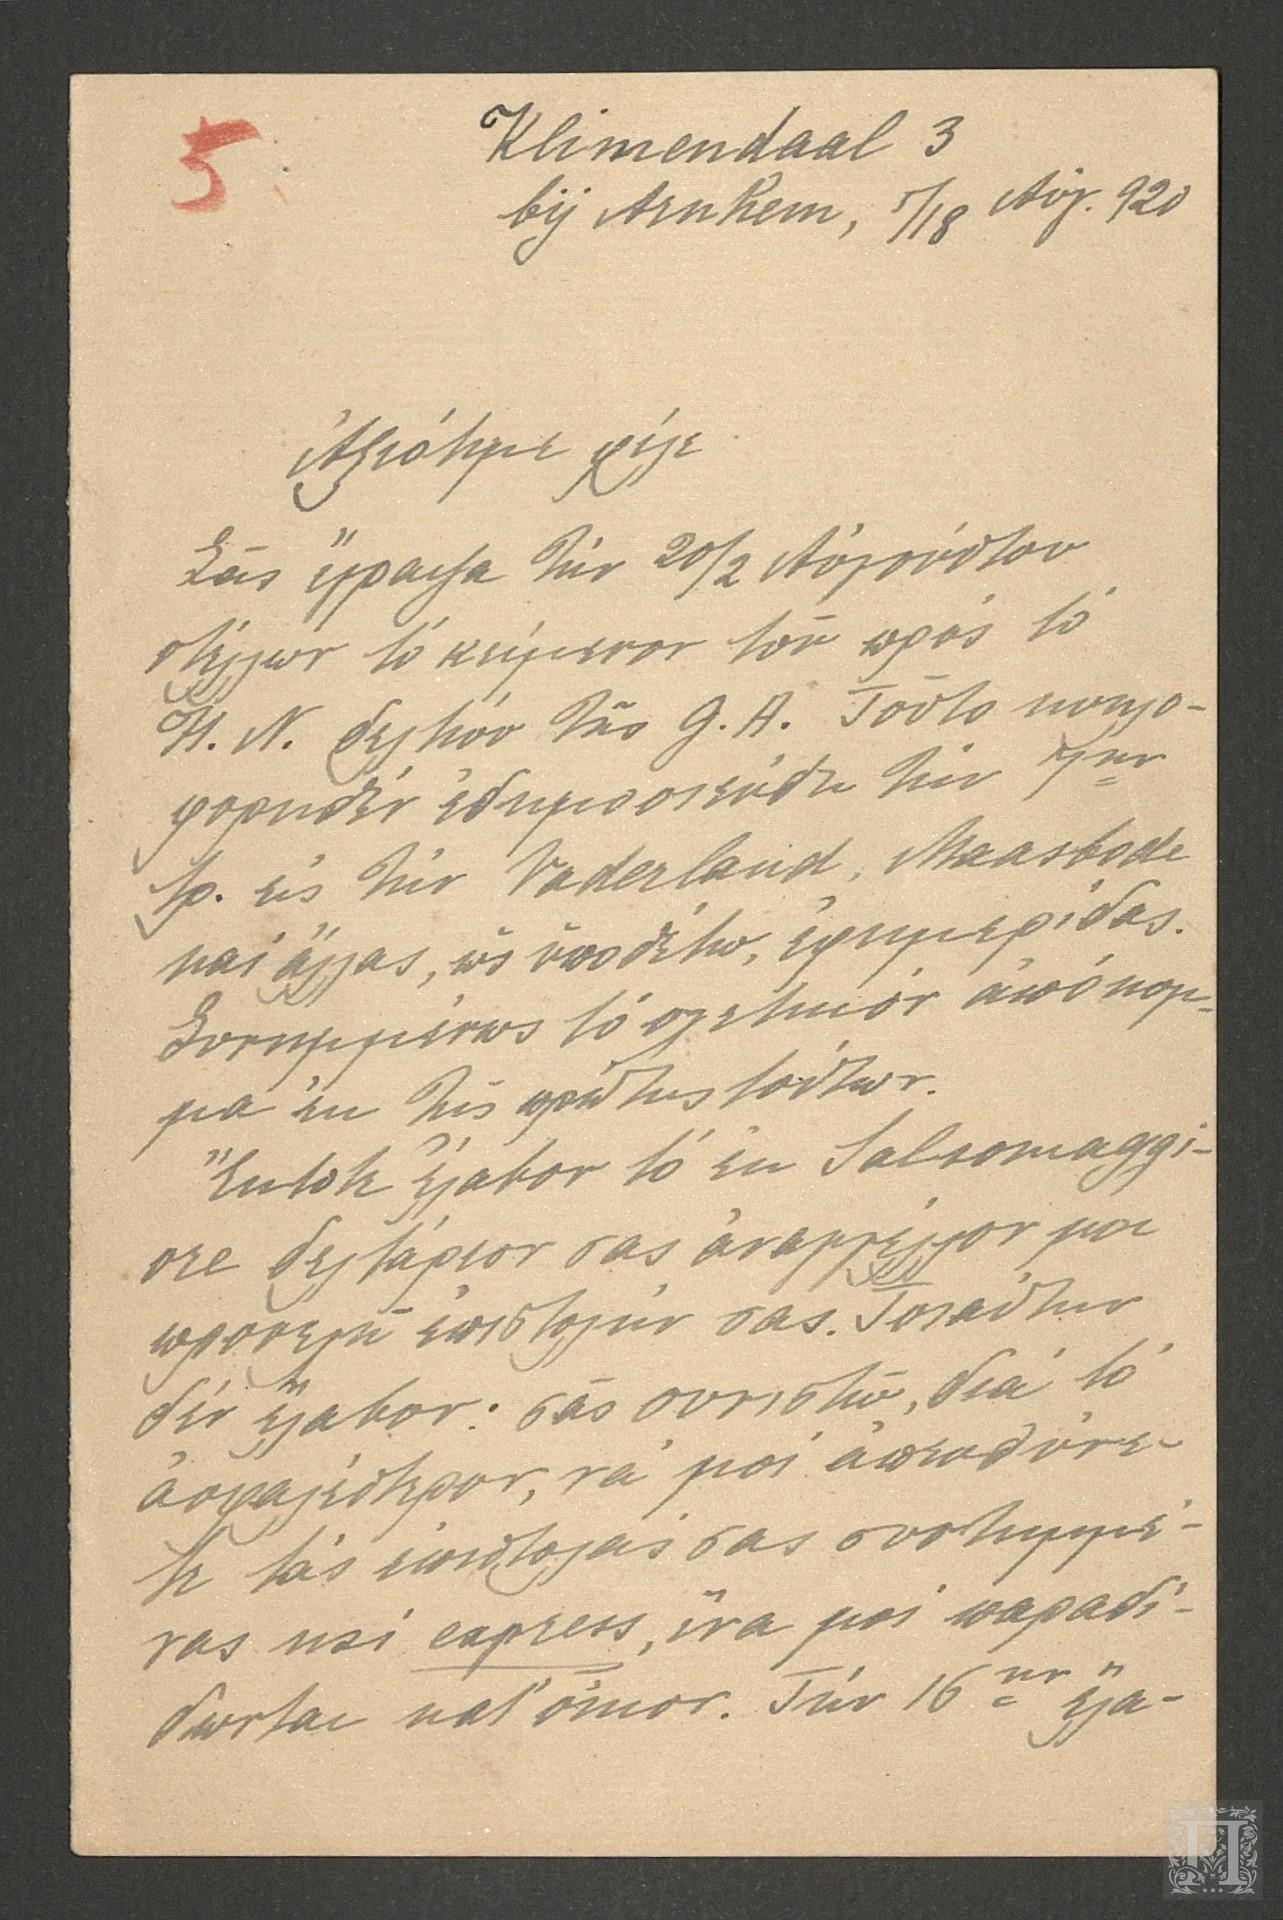 5
Klimendaal 3
bij Arnhem, 5/18 Αὐγ. 920
Ἀξιότιμε φίλε
Σᾶς ἔγραψα τὴν 20/2 Αὐγούστου
στέλλων τὸ κείμενον τοῦ πρὸς τὸ
H. N. δελτίου τῆς G. A. Τοῦτο κυκλο-
φορηθὲν ἐδημοσιεύθη τὴν 7ην
τρ. εἰς τὴν Vaderland, Maasbode
καὶ ἄλλας, ὡς ὑποθέτω, ἐφημερίδας.
Συνημμένως τὸ σχετικὸν ἀπόκομ-
μα ἐκ τῆς πρώτης τούτων.
Ἔκτοτε ἔλαβον τὸ ἐκ Salsomaggi-
ore δελτάριον σας ἀναγγέλλον μοι
προσεχῆ ἐπιστολήν σας. Τοιαύτην
δὲν ἔλαβον· σᾶς συνιστῶ, διὰ τὸ
ἀσφαλέστερον, νὰ μοὶ ἀπευθύνη-
τε τὰς ἐπιστολάς σας συστημμέ-
νας καὶ express, ἵνα μοὶ παραδί-
δωνται κατ' οἶκον. Τὴν 16ην ἔλα-